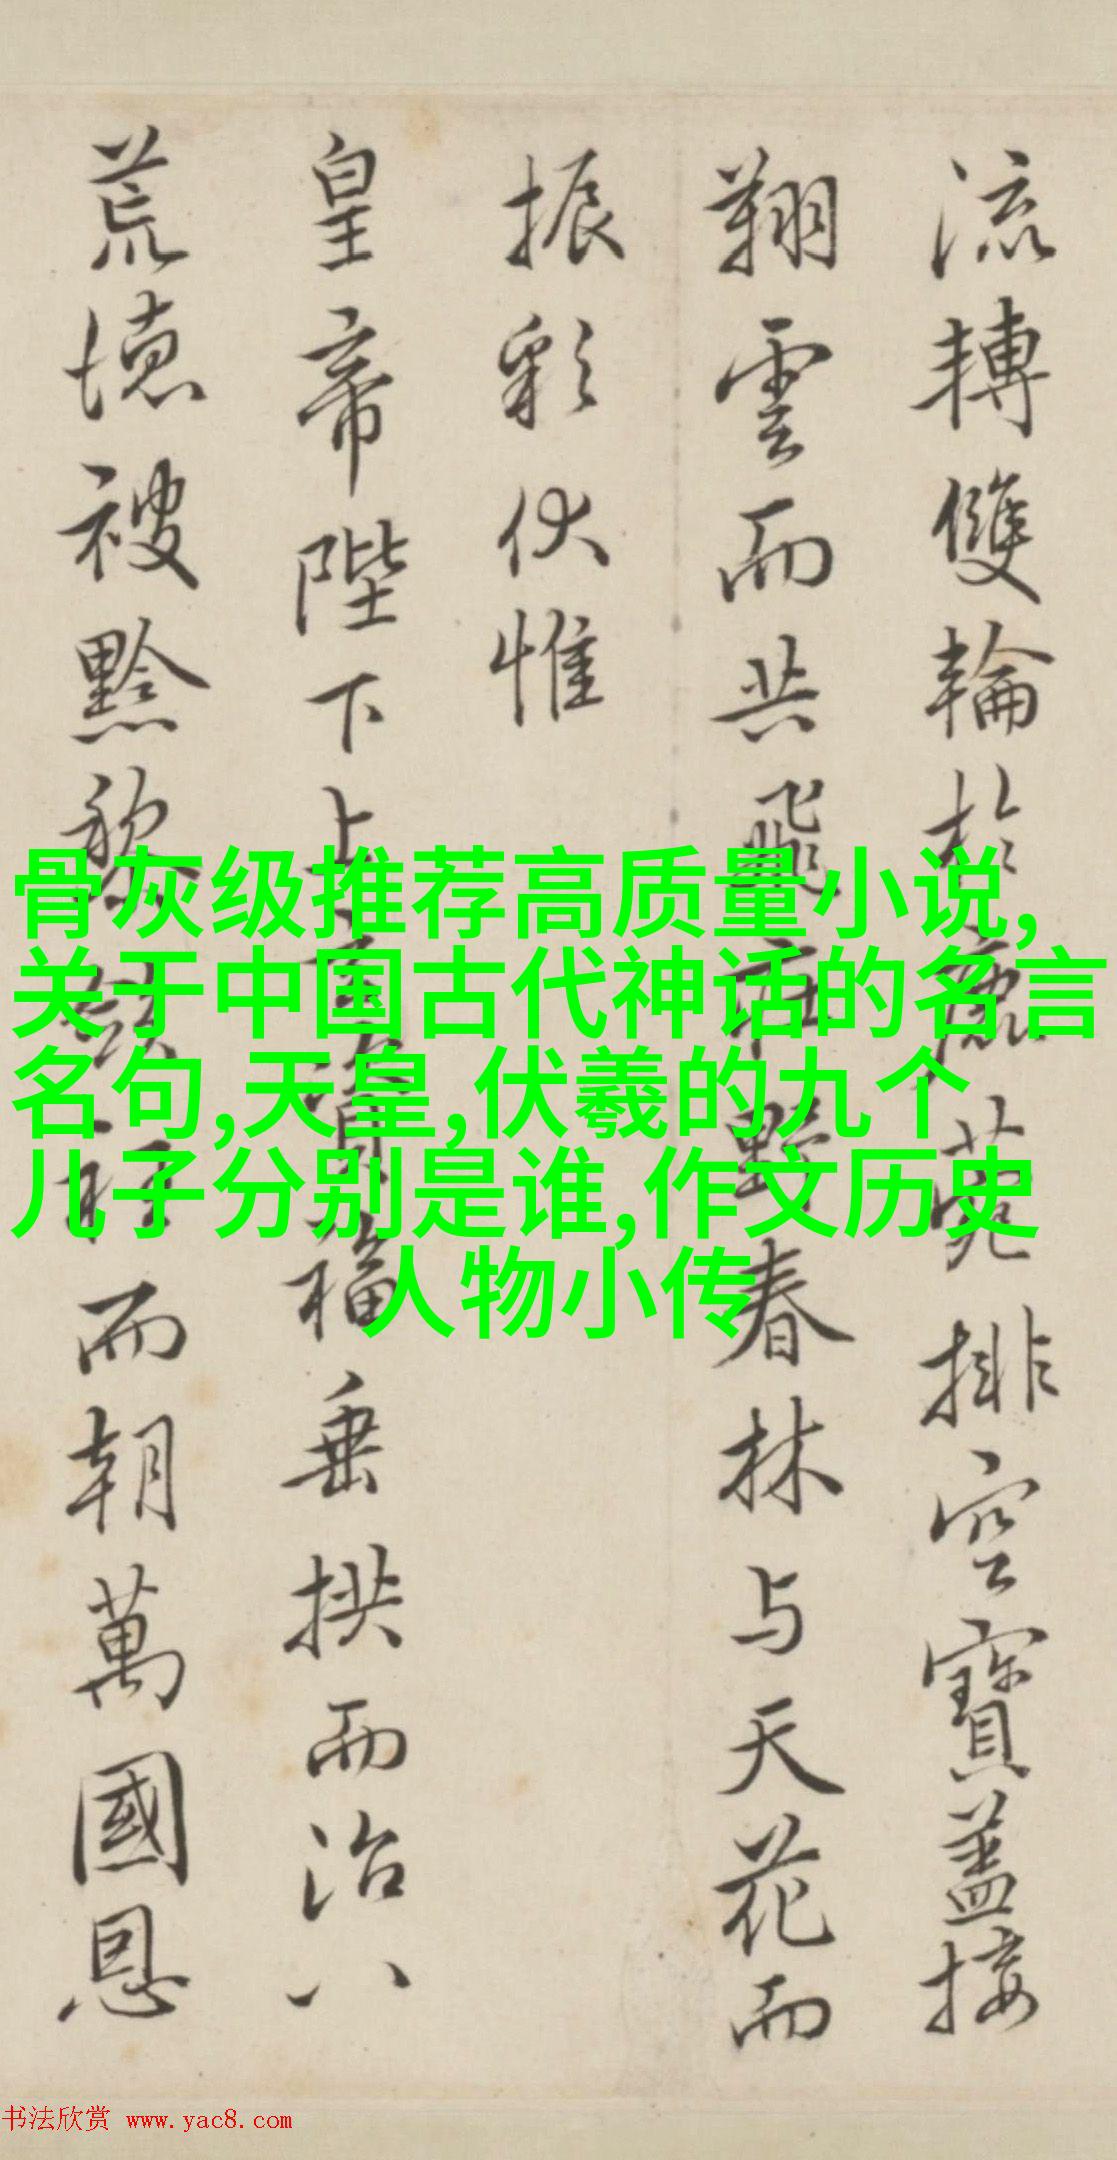 流轉雙輪於鹿苑排空寶蓋接
翔雲而共飛莊野春林与天花而
振彩伏惟
皇帝陛下上玄資福垂拱而治八
荒德被黔黎斂衽而朝萬國恩
骨灰级推荐高质量小说,
关于中国古代神话的名言
名句,天皇,伏羲的九个
儿子分别是谁,作文历史
人物小传
书法欣赏 www.yac8.com